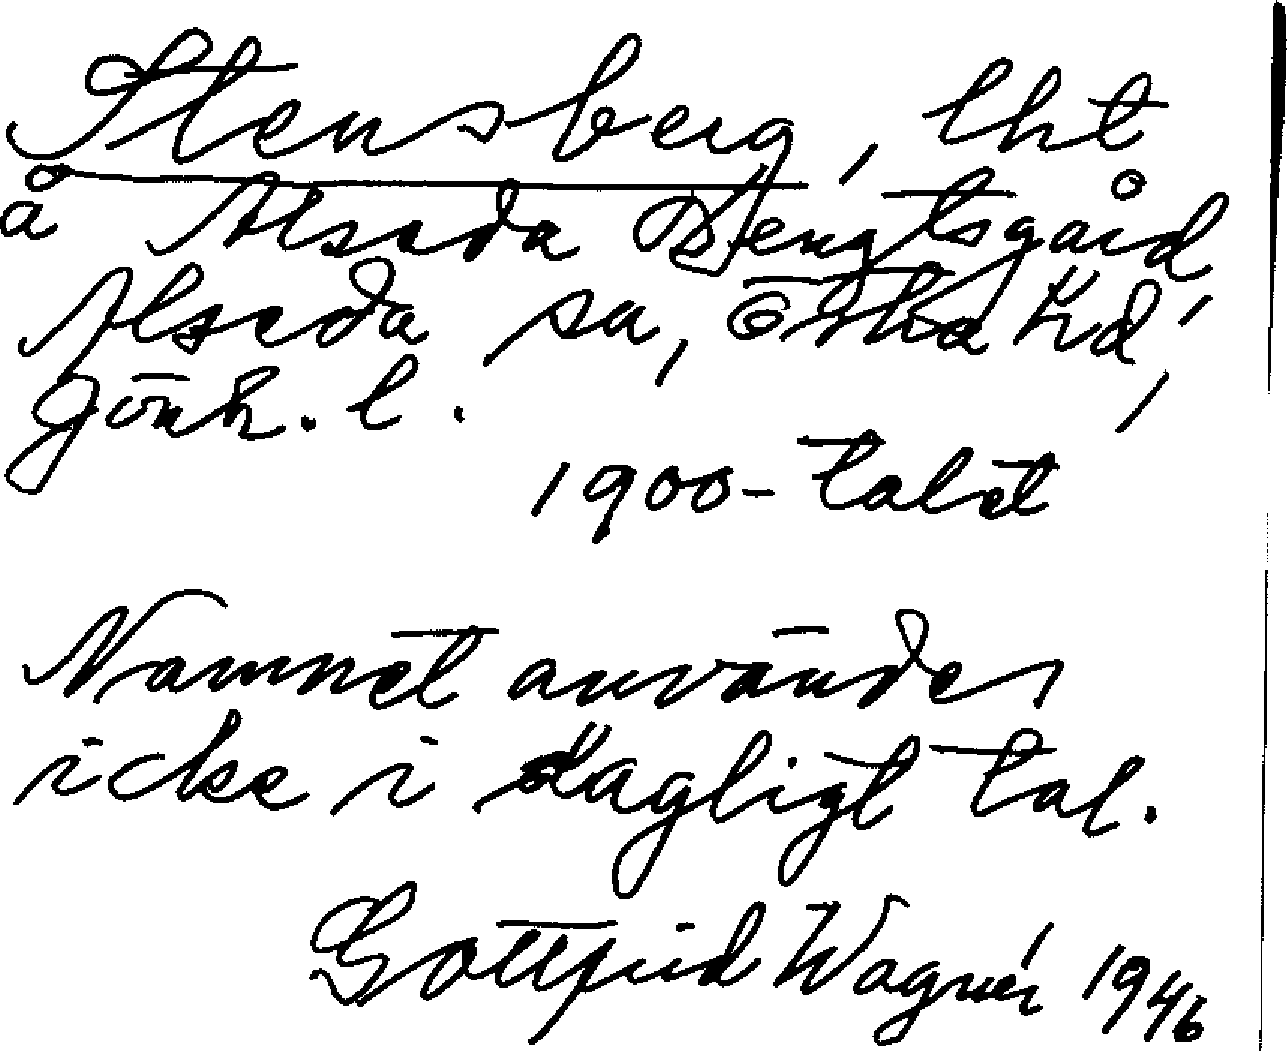 Stensberg, lht
å Alseda Bengtsgård,
Alseda sn, Östra hd,
Jönk. l.
1900-talet
Namnet användes
icke i dagligt tal.
Gottfrid Wagnér 1946